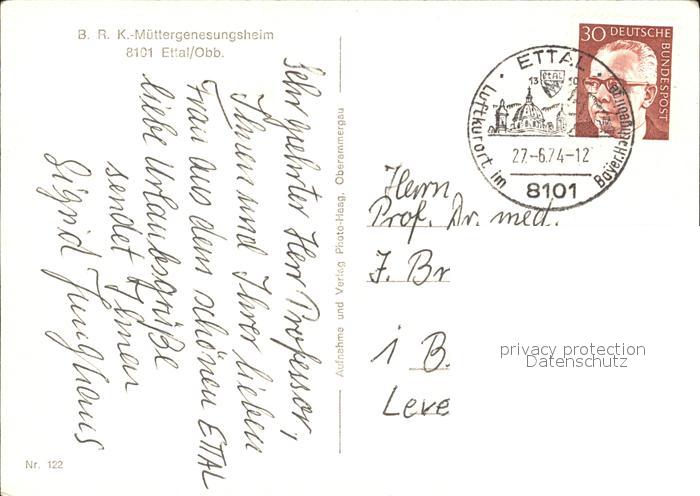 B. R. K.-Müttergenesungsheim
8101 Ettal/Obb.
Sehr geehrter Herr Professor,
Ihnen und Ihrer lieben
Frau aus dem schönen ETTAL
liebe Urlaubsgrüße
sendet Ihnen
Sigrid Junghans
Nr. 122
Aufnahme und Verlag Photo-Haag, Oberammergau
30 DEUTSCHE
BUNDESPOST
ETTAL
13
Luftkurort im
27.-6.74-12
8101
Herrn
Prof. Dr. med.
J. Br
1 B.
Leve
privacy protection
Datenschutz